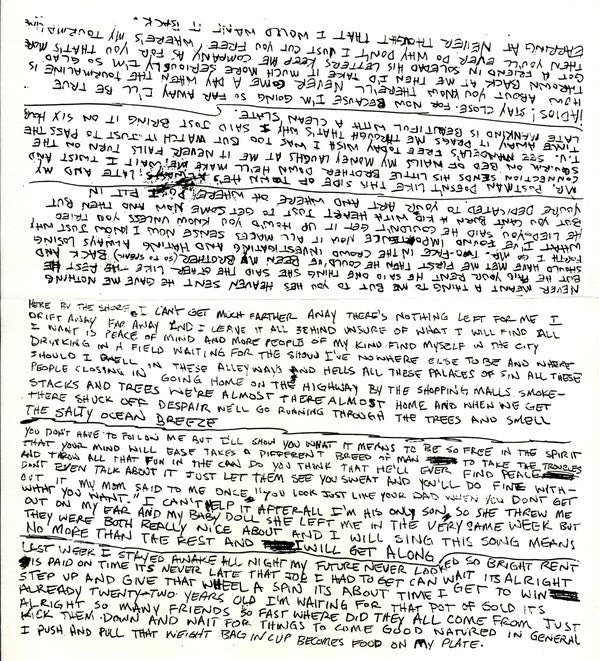 NEVER MEANT A THING TO ME BUT TO YOU HES HEAVEN SENT HE GAVE ME NOTHING
BUT HE PAID YOUR RENT HE SAID ONE THING SHE SAID THE OTHER LIKE THE REST HE
SHOULD HAVE MET ME FIRST THEN HE COULD'VE BEEN MY BROTHER (GO TO BACK AND
FORTH I GO MR. TWO-FACE IN THE CROWD INVESTIGATING AND HATING ALWAYS LOSING
WHAT I'VE FOUND IMPOTENCE NOW IT ALL MAKES SENSE NOW I KNOW JUST WHY
HE LIED YOU SAID HE COULDN'T GET IT UP HOW'D YOU KNOW UNLESS YOU TRIED
BUT YOU CAN'T BEAT A KID WITH HEART JUST TO GET SOME NOW AND THEN BUT
YOU'RE DEDICATED TO YOUR ART AND WHERE OH WHERE DO I FIT IN
MR. POSTMAN DOESN'T LIKE THIS SIDE OF TOWN HE'S ALWAYS LATE AND MY
CONNECTION SENDS HIS LITTLE BROTHER DOWN HE'LL MAKE ME WAIT I TWIST AND
ON BED OF NAILS MY MONEY LAUGHS AT ME IT NEVER FAILS TURN ON THE
T.V. SEE MANDELA'S FREE TODAY WISH I WAS TOO BUT WATCH IT JUST TO PASS THE
TIME AWAY IT DRAGS ME THROUGH THAT'S WHY I SAID JUST BRING IT ON SIX HOURS
LATE MANKIND IS BEAUTIFUL WITH A CLEAN SLATE.
ADIOS STAY CLOSE. FOR NOW BECAUSE I'M GOING SO FAR AWAY I'LL BE TRUE
HOW ABOUT YOU KNOW THERE'LL NEVER COME A DAY WHEN THE TOURMALINE IS
THROWN BACK AT ME THEN I'D TAKE IT MUCH MORE SERIOUSLY I'M SO GLAD
GOT A FRIEND IN SOLEDAD HIS LETTERS KEEP ME COMPANY AS FOR YOU THAT'S MORE
THEN YOU'LL EVER DO WHY DON'T I JUST CUT YOU FREE/ WHERE'S MY TOURMALINE
EARRING AT NEVER THOUGHT THAT I WOULD WANT IT BACK.
HERE BY THE SHORE, I CAN'T GET MUCH FARTHER AWAY THERE'S NOTHING LEFT FOR ME I
DRIFT AWAY FAR AWAY AND I LEAVE IT ALL BEHIND UNSURE OF WHAT I WILL FIND ALL
I WANT IS PEACE OF MIND AND MORE PEOPLE OF MY KIND FIND MYSELF IN THE CITY
DRINKING IN A FIELD WAITING FOR THE SHOW I'VE NOWHERE ELSE TO BE AND WHERE
SHOULD I DWELL IN THESE ALLEYWAYS AND HELLS ALL THESE PALACES OF SIN ALL THESE
PEOPLE CLOSING IN GOING HOME ON THE HIGHWAY BY THE SHOPPING MALLS SMOKE-
STACKS AND TREES WE'RE ALMOST THERE ALMOST HOME AND WHEN WE GET
THERE SHUCK OFF DESPAIR WE'LL GO RUNNING THROUGH THE TREES AND SMELL
THE SALTY OCEAN BREEZE
YOU DON'T HAVE TO FOLLOW ME BUT I'LL SHOW YOU WHAT IT MEANS TO BE SO FREE IN THE SPIRIT
THAT YOUR MIND WILL EASE TAKES A DIFFERENT BREED OF MAN TO TAKE THE TROUBLES
AND THROW ALL THAT FUN IN THE CAN DO YOU THINK THAT HE'LL EVER FIND PEACE
DON'T EVEN TALK ABOUT IT JUST LET THEM SEE YOU SWEAT AND YOU'LL DO FINE WITH-
OUT IT MY MOM SAID TO ME ONCE, "YOU LOOK JUST LIKE YOUR DAD WHEN YOU DON'T GET
WHAT YOU WANT." I CAN'T HELP IT AFTER-ALL I'M HIS ONLY SON, SO SHE THREW ME
OUT ON MY EAR AND MY BABY DOLL SHE LEFT ME IN THE VERY SAME WEEK BUT
THEY WERE BOTH REALLY NICE ABOUT AND I WILL SING THIS SONG MEANS
NO MORE THAN THE REST AND I WILL GET ALONG
LAST WEEK I STAYED AWAKE ALL NIGHT MY FUTURE NEVER LOOKED SO BRIGHT RENT
IS PAID ON TIME ITS NEVER LATE THAT JOB I HAD TO GET CAN WAIT ITS ALRIGHT
STEP UP AND GIVE THAT WHEEL A SPIN ITS ABOUT TIME I GET TO WIN
ALREADY TWENTY-TWO YEARS OLD I'M WAITING FOR THAT POT OF GOLD ITS
ALRIGHT SO MANY FRIENDS SO FAST WHERE DID THEY ALL COME FROM JUST
KICK THEM DOWN AND WAIT FOR THINGS TO COME GOOD NATURED IN GENERAL
I PUSH AND PULL THAT WEIGHT BAG IN CUP BECOMES FOOD ON MY PLATE.